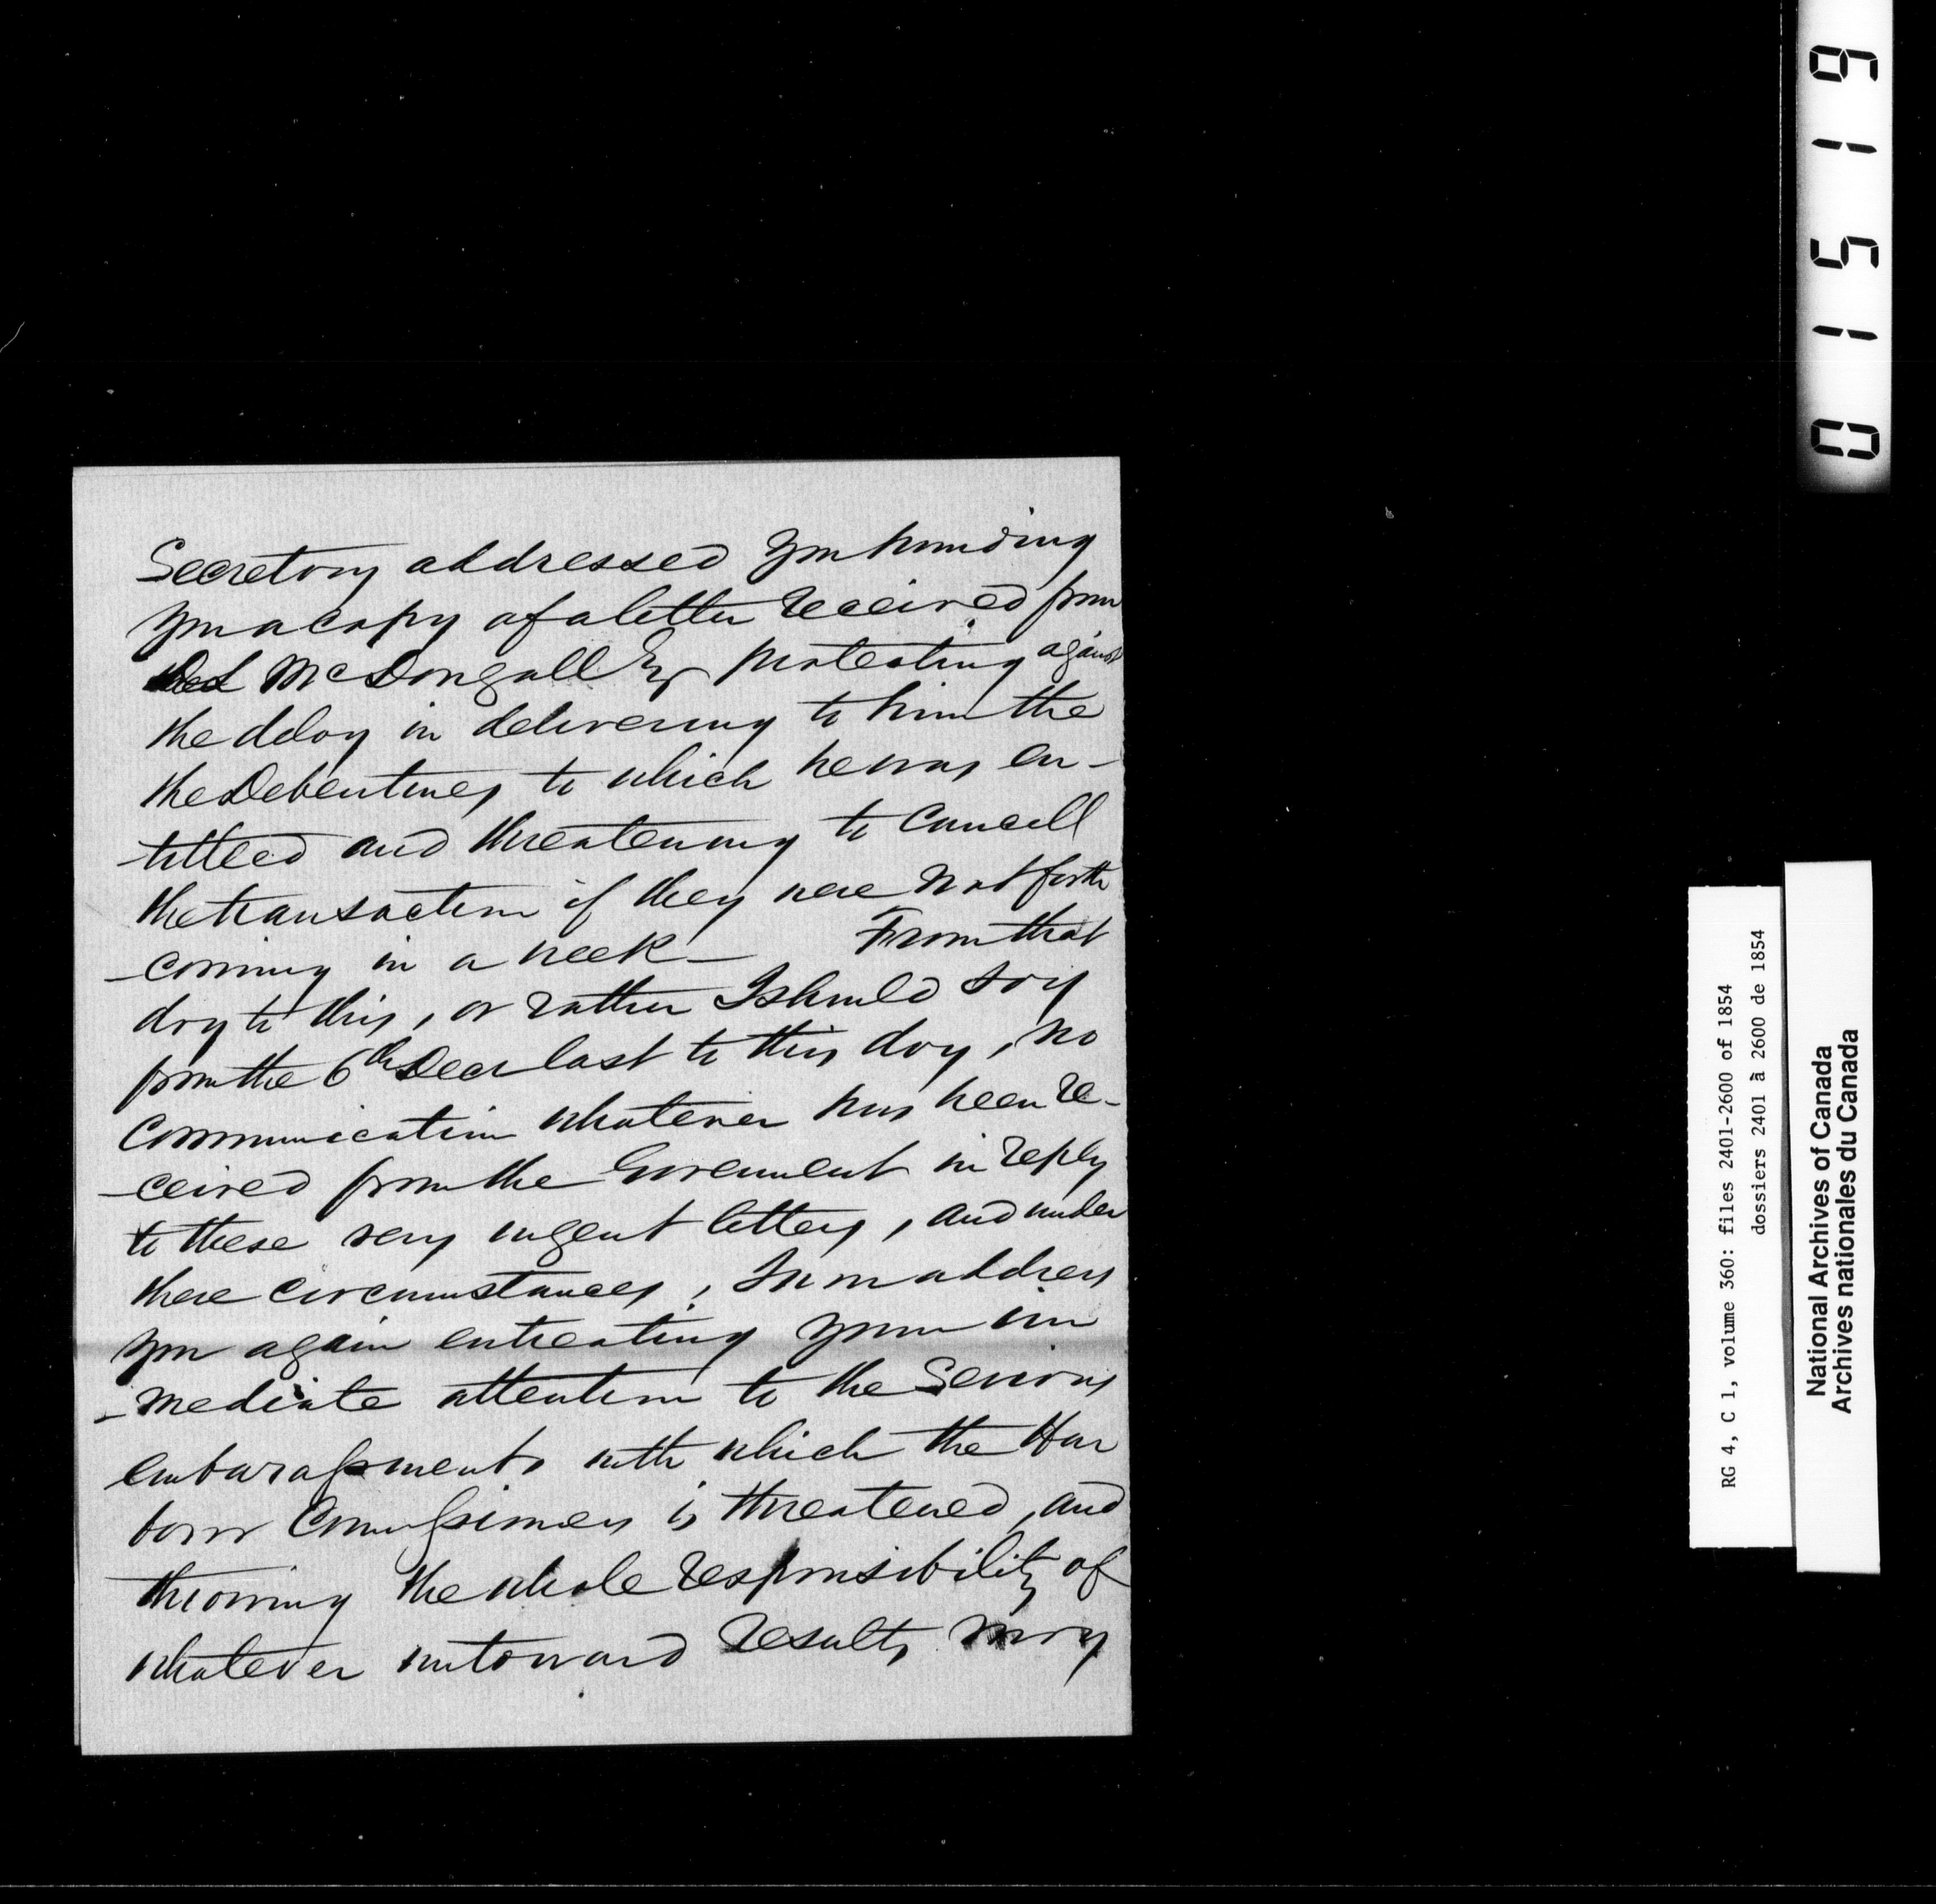 Secretary addressed you handing
you a copy of a letter received from
McDougall Esqr protesting against
the delay in delivering to him the
the Debentures to which he was en-
-titled and threatening to cancell
the transaction if they were not forth
-coming in a week — From that
day to this, or rather I should say
from the 6th Decr last to this day, no
communication whatever has been re-
-ceived from the Government in reply
to these very urgent letters, and under
these circumstances, I now address
you again entreating your im
-mediate attention to the serious
embarassments with which the Har
bour Commissioners is threatened, and
throwing the whole responsibility of
whatever untoward results may
01519
RG 4, C 1, volume 360: files 2401-2600 of 1854
dossiers 2401 à 2600 de 1854
National Archives of Canada
Archives nationales du Canada